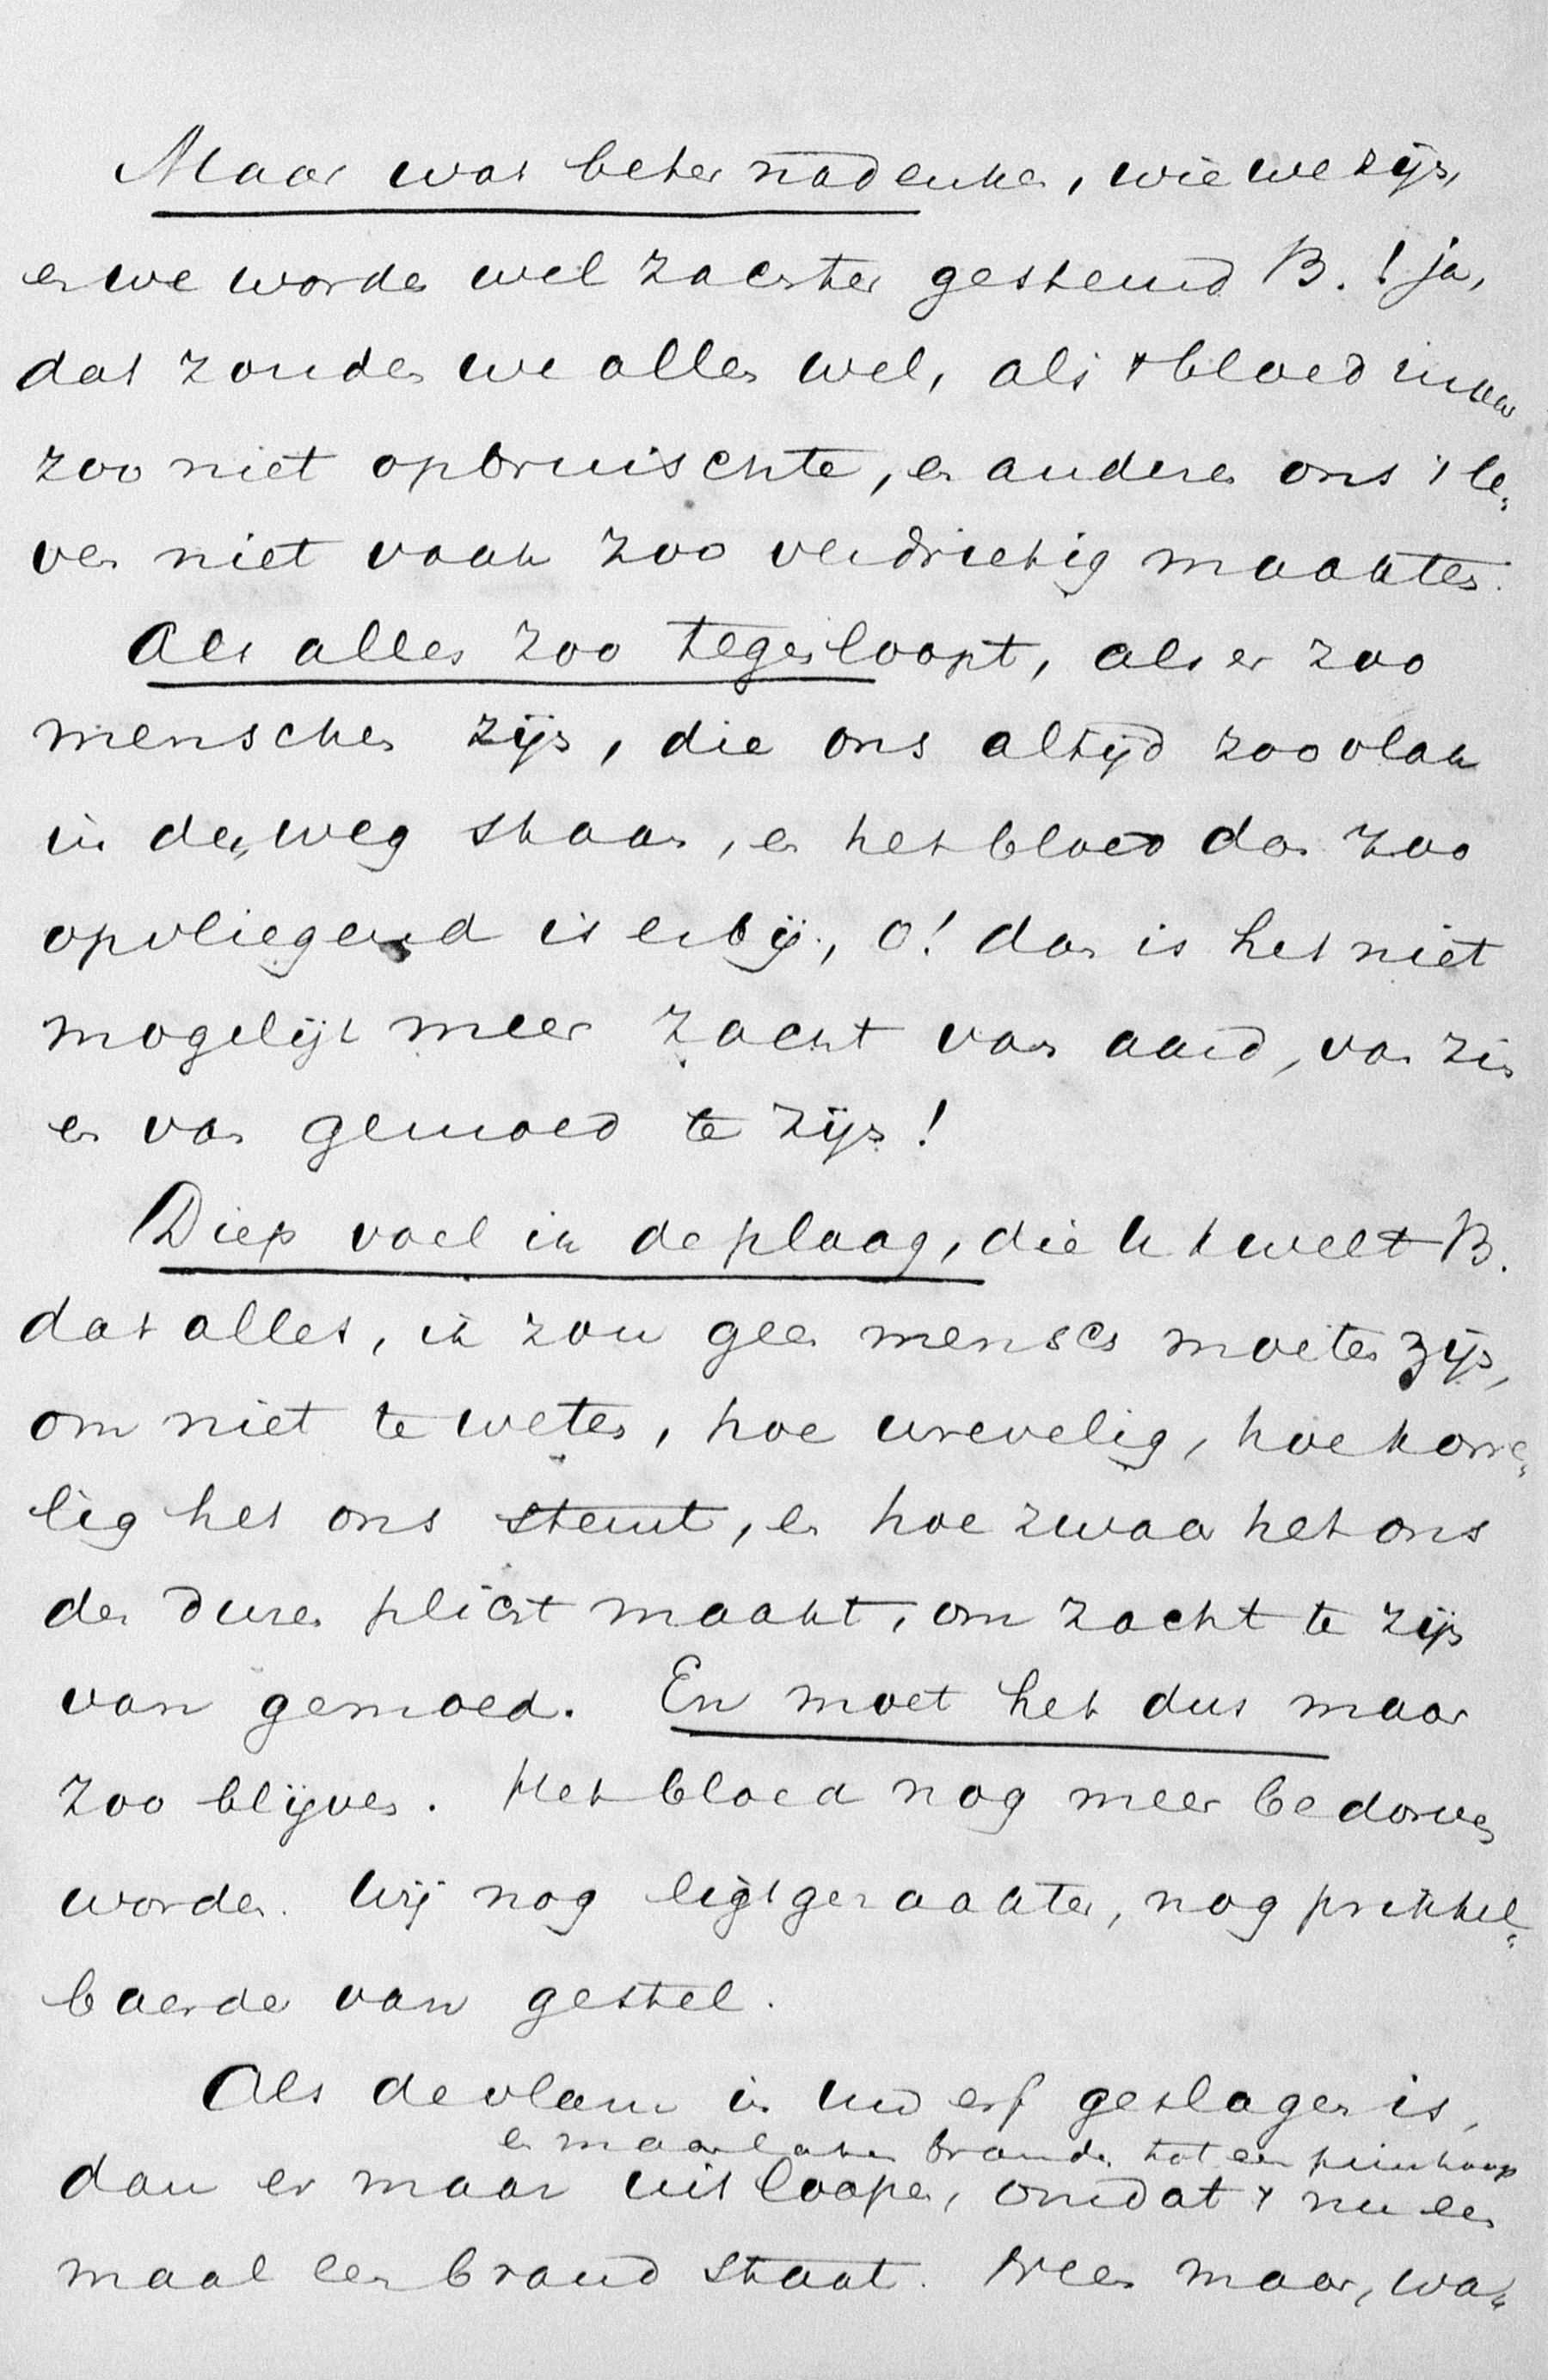 Maar wat beter nadenken, wie we zijn,
en we worden wel zachter gestemd B.! ja,
dat zouden we allen wel, als 't bloed maar
zoo niet opbruischte, en anderen ons 't le„
ven niet vaak zoo verdrietig maakten.
Als alles zoo tegenloopt, als er zoo
menschen zijn, die ons altijd zoo vlak
in den weg staan, en het bloed dan zoo
opvliegend is erbij, o! dan is het niet
mogelijk meer zacht van aard, van zin
en van gemoed te zijn!
Diep voel ik de plaag, die U kwelt B.
dat alles, ik zou geen mensch moeten zijn,
om niet te weten, hoe wrevelig, hoe korre„
lig het ons stemt, en hoe zwaar het ons
den duren plicht maakt, om zacht te zijn
van gemoed. En moet het dus maar
zoo blijven. Het bloed nog meer bedorven
worden. Wij nog ligtgeraakter, nog prikkel„
baarder van gestel.
Als de vlam in uw erf geslagen is,
en maar laten branden tot een puinhoop
dan er maar uitloopen, omdat 't nu een
maal in brand staat. Neen maar, wa„